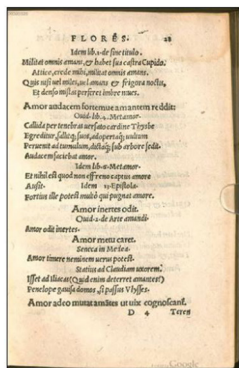 FLORES. 28
Idem lib.1. de sine titulo.
Militat omnis amans, & habet sua castra Cupido.
Attice, crede mihi, militat omnis amans.
Quis nisi vel miles, vel amans & frigora noctis,
Et denso mistas perferet imbre niues.
Amor audacem fortemue amantem reddit:
Ouid. lib. 4. Metamor.
Callida per tenebras uersato cardine Thysbe
Egreditur, fallitq; suos, adopertaq; uultum
Peruenit ad tumulum, dictaq; sub arbore sedit.
Audacem faciebat amor.
Idem lib. Metamor.
Et nihil est quod non effreno captus amore
Ausit. Idem Epistola.
Fortius ille potest multò qui pugnat amore.
Amor inertes odit.
Ouid. 2. de Arte amandi.
Amor odit inertes.
Amor metu caret.
Seneca in Medea.
Amor timere neminem uerus potest.
Statius ad Claudiam uxorem.
Isset ad Iliacas (Quid enim deterret amantes?)
Penelope gauisa domos, si passus Vlysses.
Amor adeo mutat amātes ut uix cognoscant.
D 4 Teren
Google